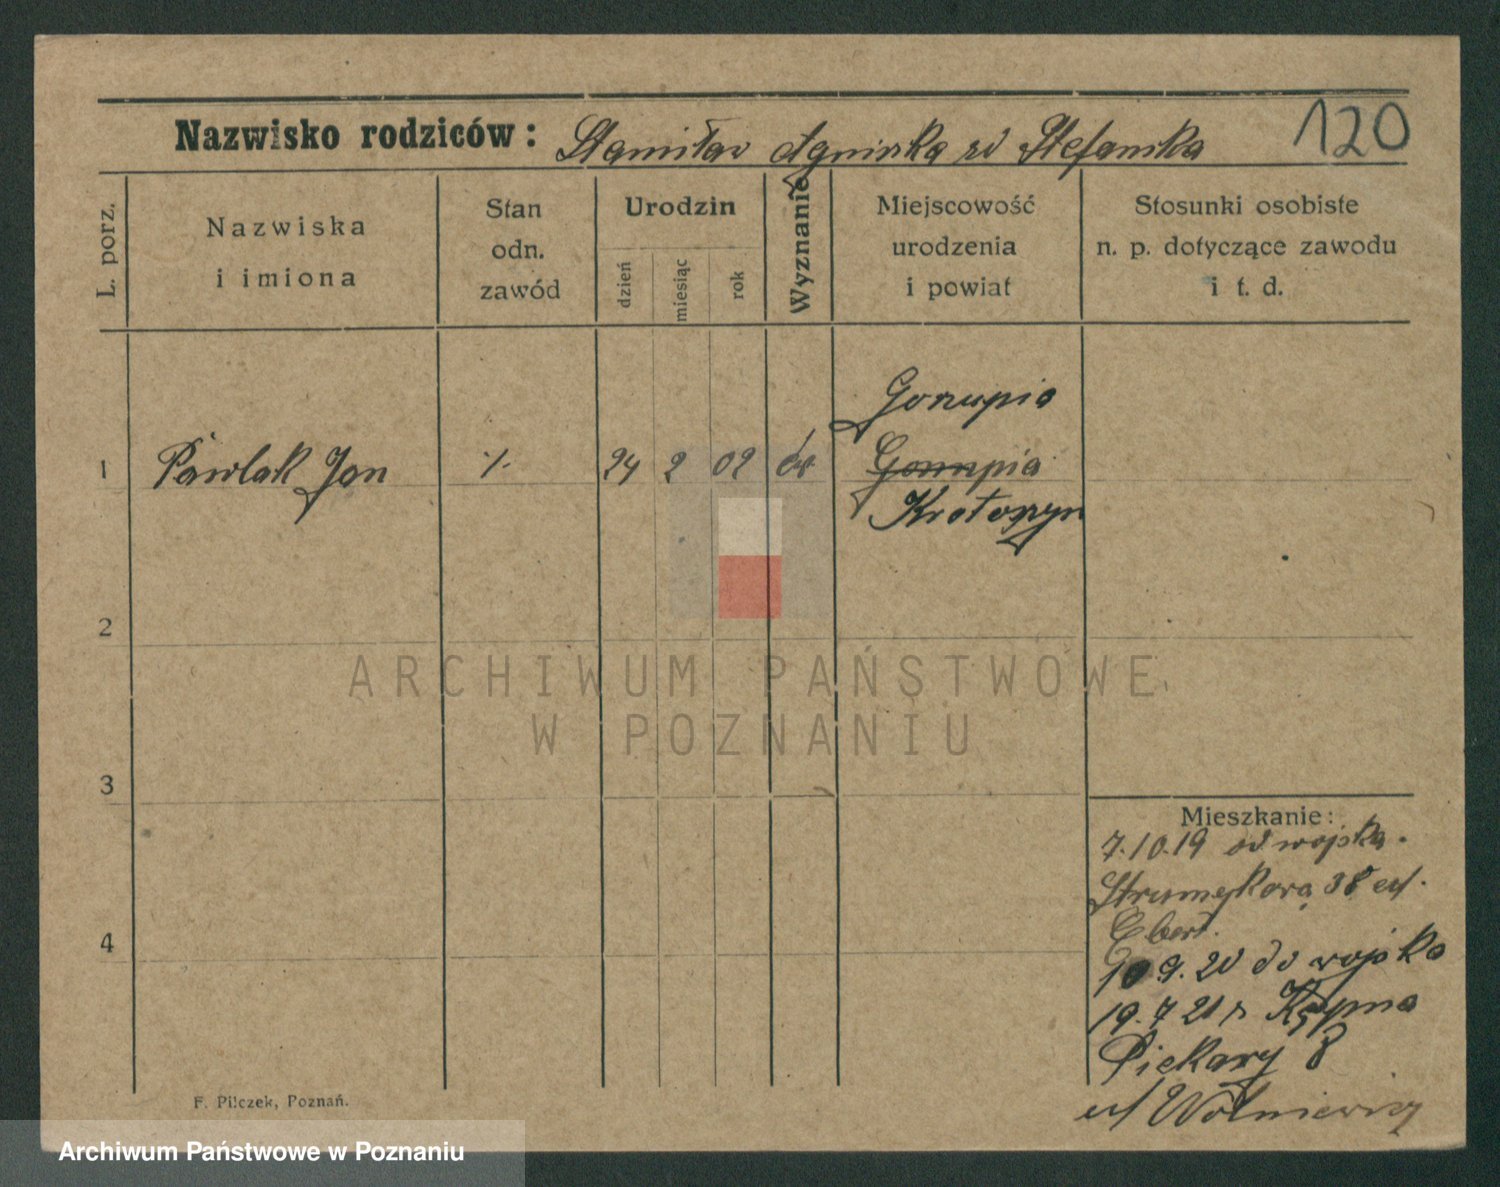 Nazwisko rodziców: Stanisław Agnieszka zd Stefanska 120
L. porz.
Nazwiska
i imiona
Stan
odn.
zawód
Urodzin
dzień
miesiąc
rok
Wyznanie
Miejscowość
urodzenia
i powiat
Stosunki osobiste
n. p. dotyczące zawodu
i t. d.
1
Pawlak Jan
24 2 02
Gorupia
Krotoszyn
2
ARCHIWUM PAŃSTWOWE
W POZNANIU
3
4
Mieszkanie:
7.10.19 od wojska.
Strumykowa 38
Ebert.
9.20 do wojska
19.7 21 z Kępna
Piekary 8
F. Pilczek, Poznań.
Archiwum Państwowe w Poznaniu